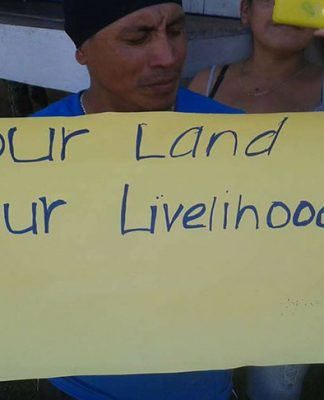 our Land
ur Livelihood